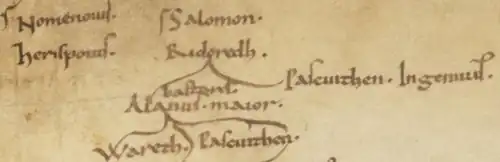 Nomenous. Salomon.
Herispous. Ruderedh.
Pascuithen. Ingenius.
Alanus. maior.
Wareth. Pascuithen.